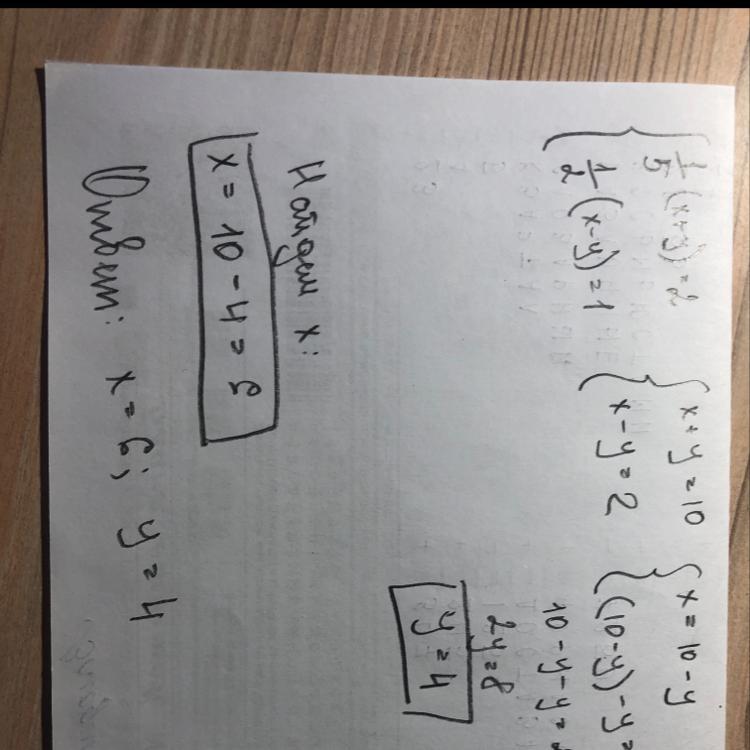 1/5 (x+y)=2
1/2 (x-y)=1
x+y=10
x-y=2
x=10-y
(10-y)-y=
10-y-y=
2y=8
y=4
Найдем x:
x=10-4=6
Ответ: x=6; y=4